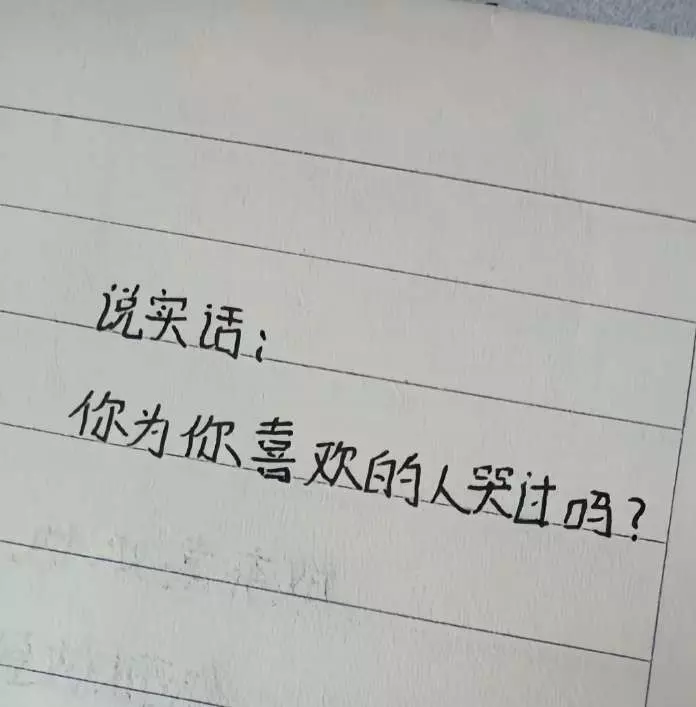 说实话:
你为你喜欢的人哭过吗?